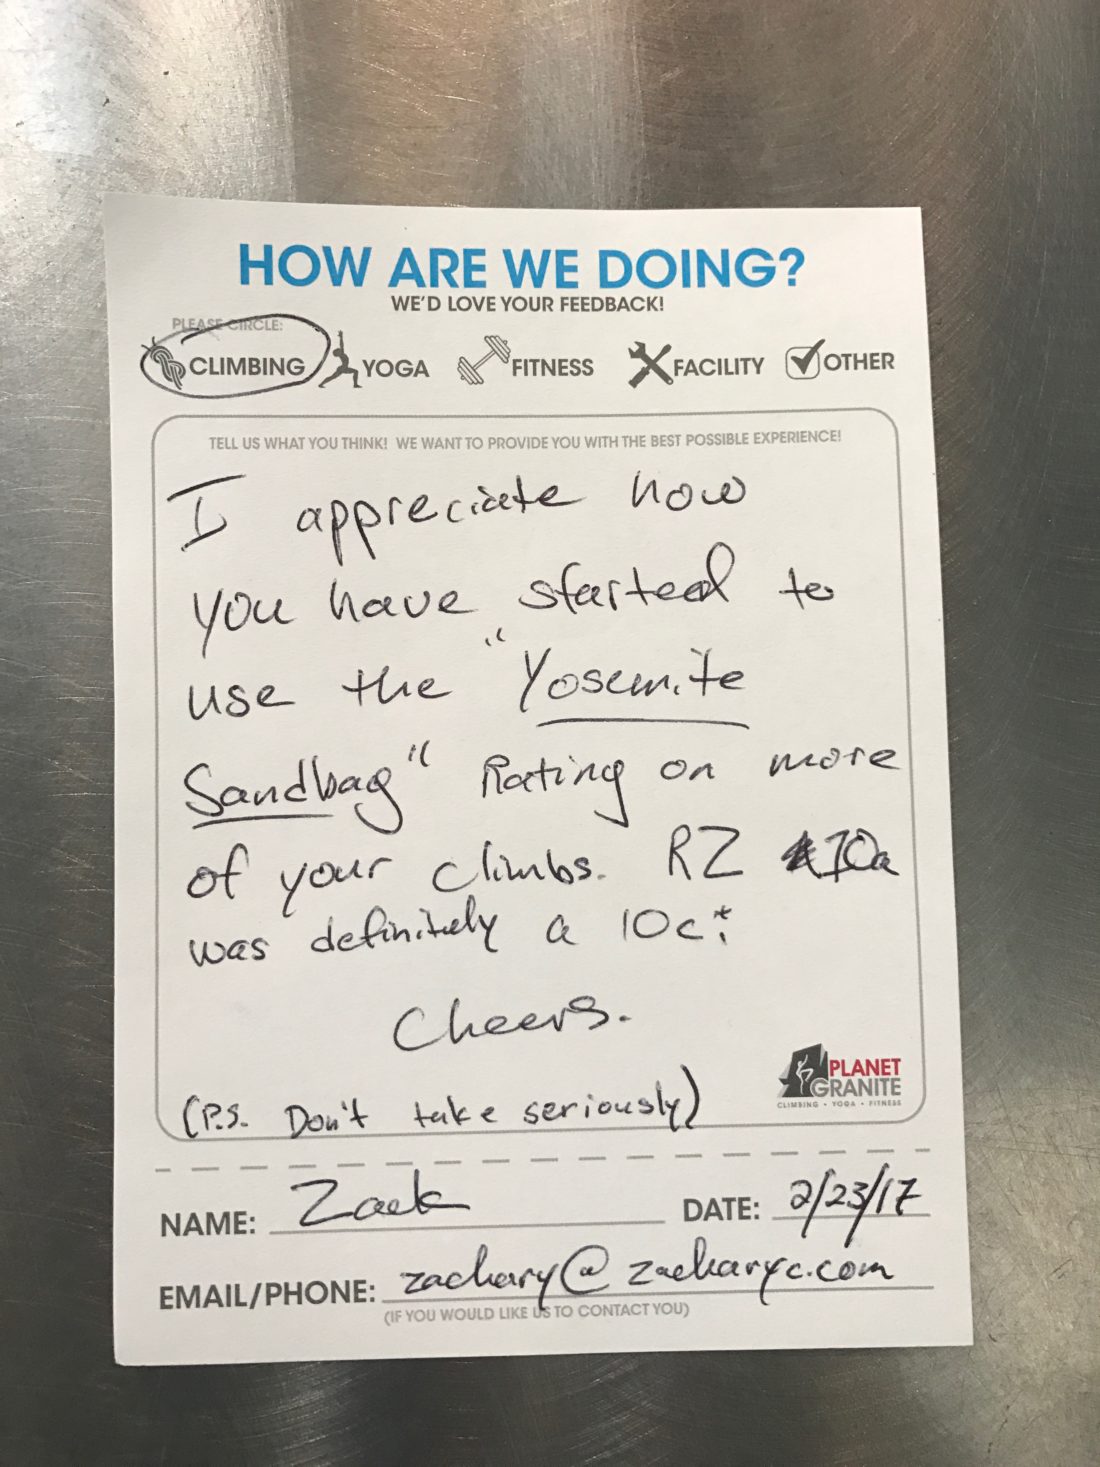 HOW ARE WE DOING?
WE'D LOVE YOUR FEEDBACK!
PLEASE CIRCLE:
CLIMBING YOGA FITNESS FACILITY OTHER
TELL US WHAT YOU THINK! WE WANT TO PROVIDE YOU WITH THE BEST POSSIBLE EXPERIENCE!
I appreciate how
you have started to
use the "Yosemite
Sandbag" Rating on more
of your climbs. RZ 10a
was definitely a 10c.
Cheers.
PLANET
GRANITE
CLIMBING • YOGA • FITNESS
(P.S. Don't take seriously)
NAME: Zack DATE: 2/23/17
EMAIL/PHONE: zachary@zacharyc.com
(IF YOU WOULD LIKE US TO CONTACT YOU)